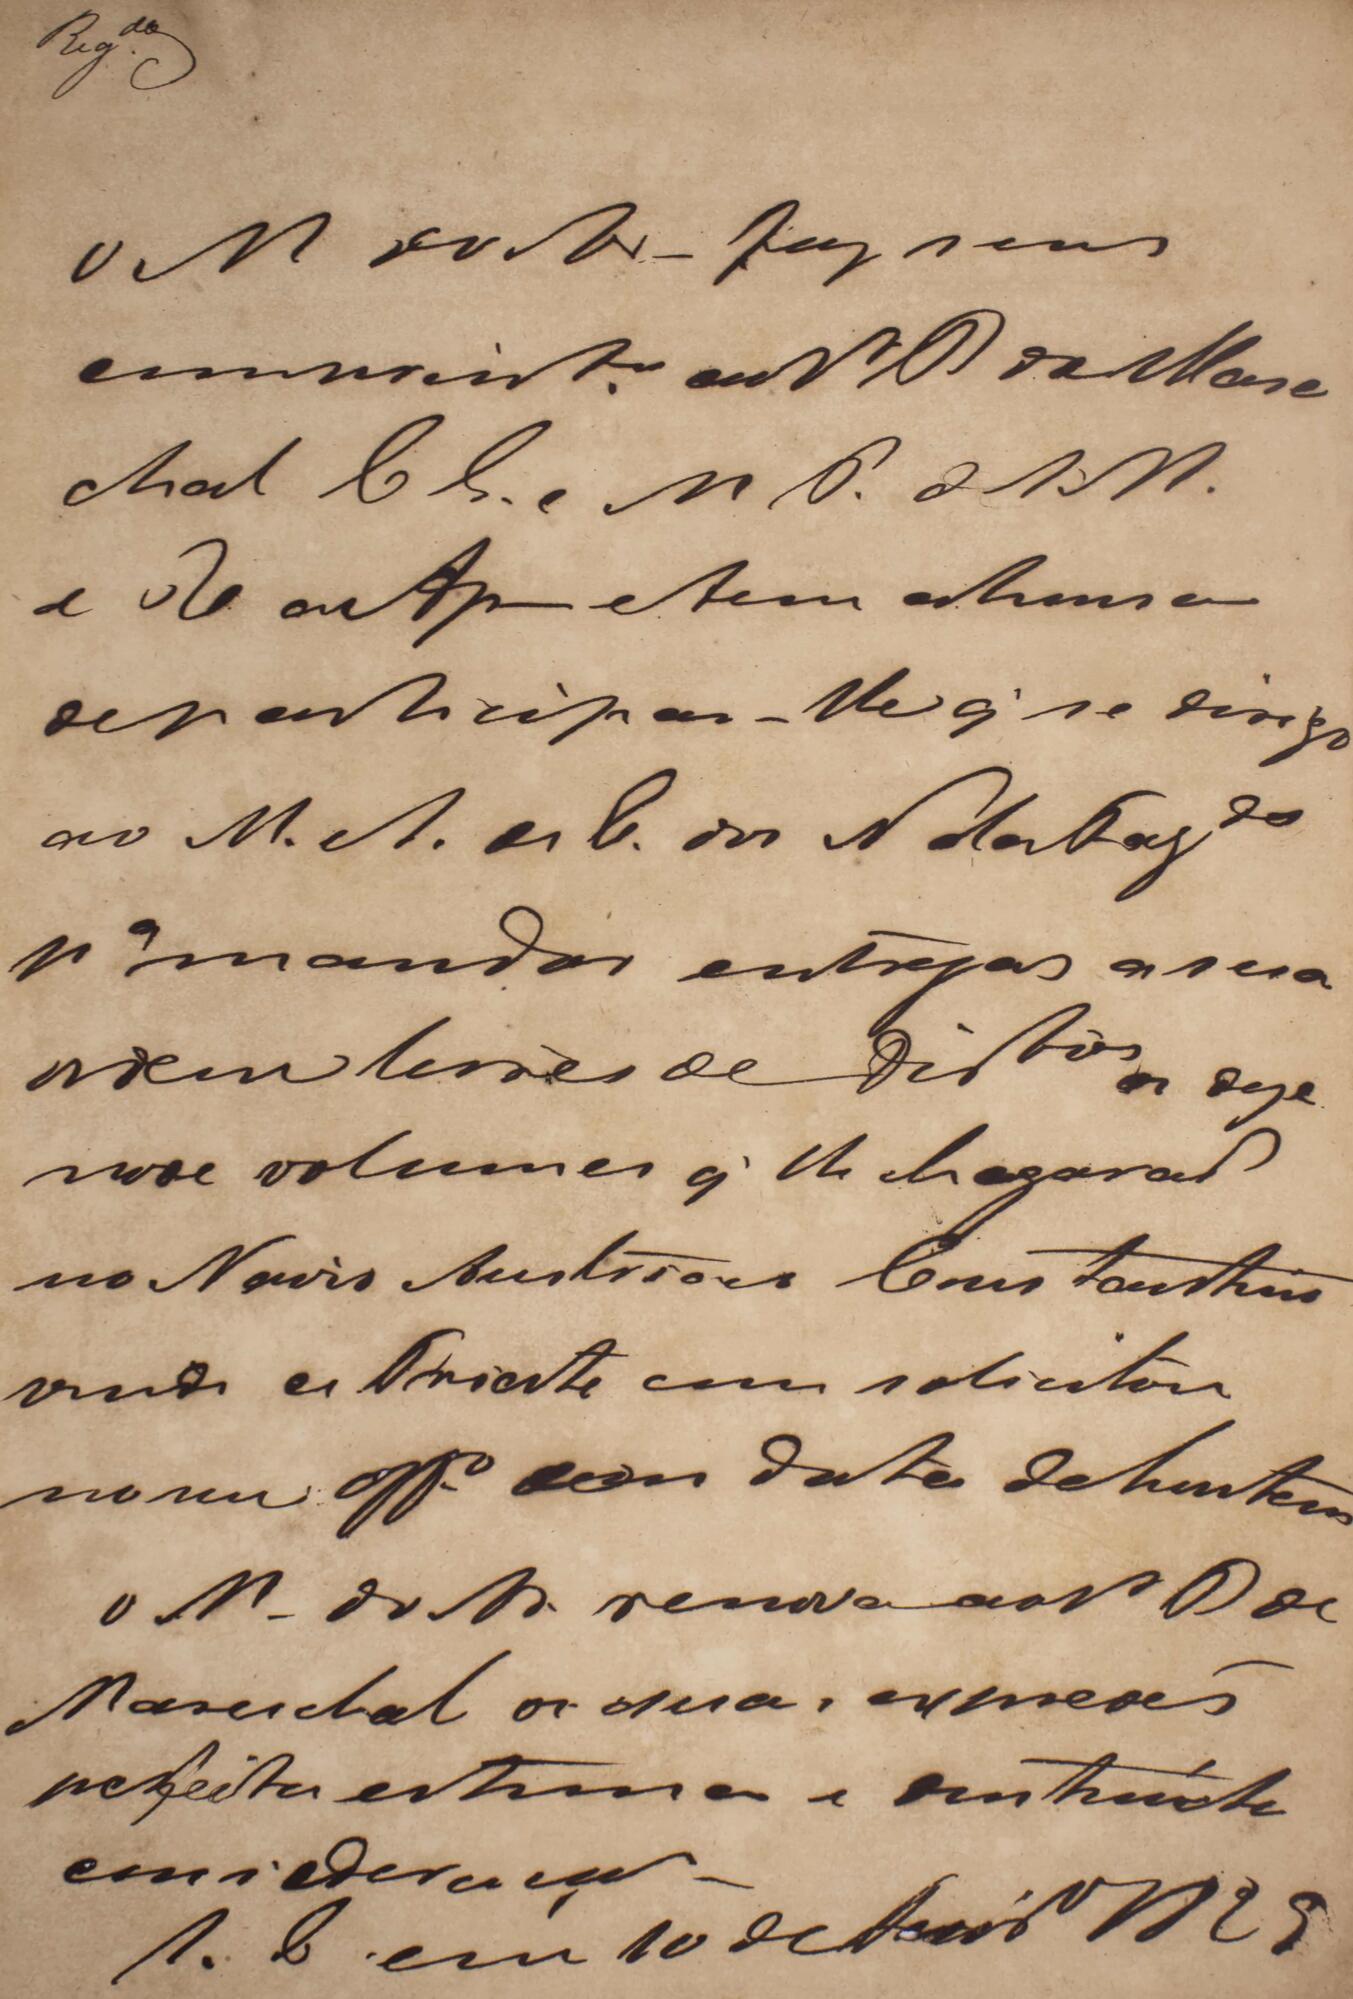 Reg.do
o M do N. - faz seus
comprimt.os ao Sr B de Mare
chal C E. e M P. de S. M.
e R. e Ap e tem a honra
de participar-lhe q' se dirigo
ao M. A. e C. dos N da Fazda
pa mandar entregar a sua
ordem livres de Direitos os deze
nove volumes q' lhe chegarão
no Navio Austriaco Constantino
vindo de Trieste como solicitou
no seu offo com data de hontem
o M. do N. renova ao Sr B de
Mareschal as suas expressões
perfeita estima e distincta
consideração -
P. em 10 de